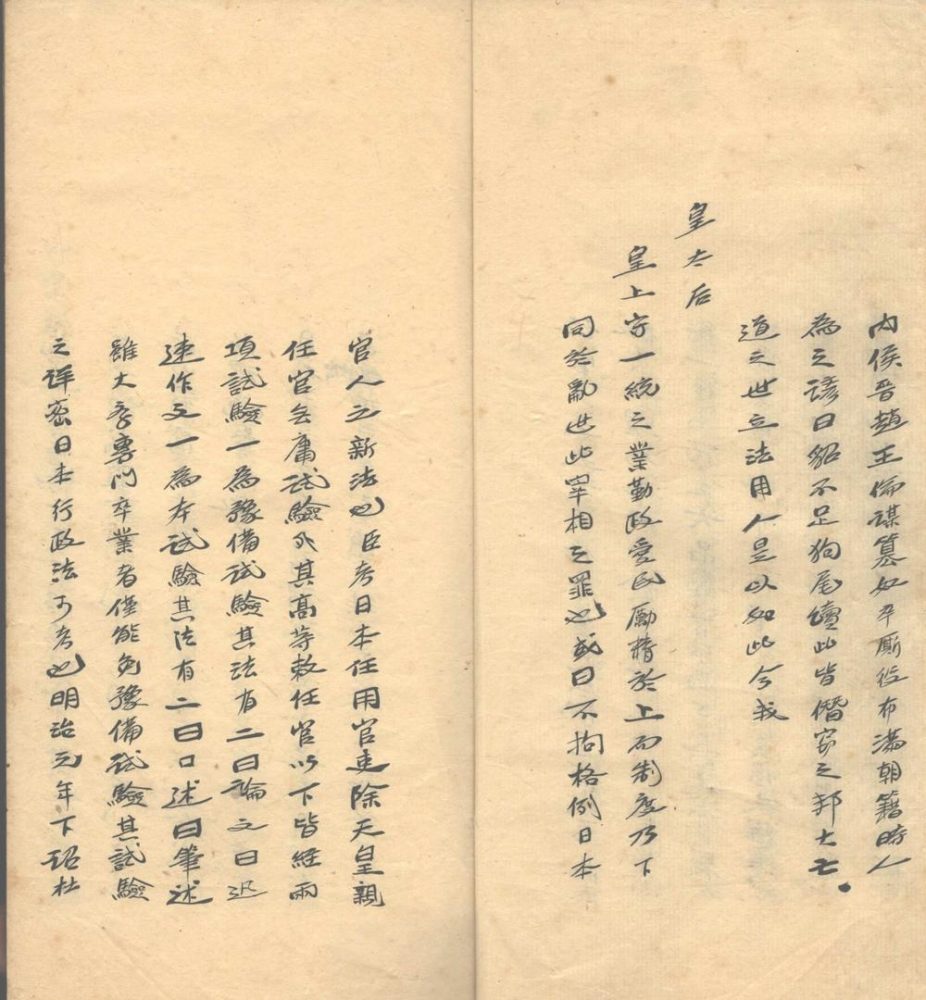 内侯晉趙王倫謀篡奴卒廝役布滿朝籍時人
為之諺曰貂不足狗尾續此皆僭竊之邦大亡
道之世立法用人是以如此今我
皇太后
皇上守一統之業勤政愛民勵精於上而制度乃下
同於亂世此宰相之罪也或曰不拘格例日本
官人之新法也臣考日本任用官吏除天皇親
任官無庸試驗外其高等敕任官以下皆經兩
項試驗一為豫備試驗其法有二曰論文曰迅
速作文一為本試驗其法有二曰口述曰筆述
雖大學專門卒業者僅能免豫備試驗其試驗
之詳密日本行政法可考也明治元年下詔杜